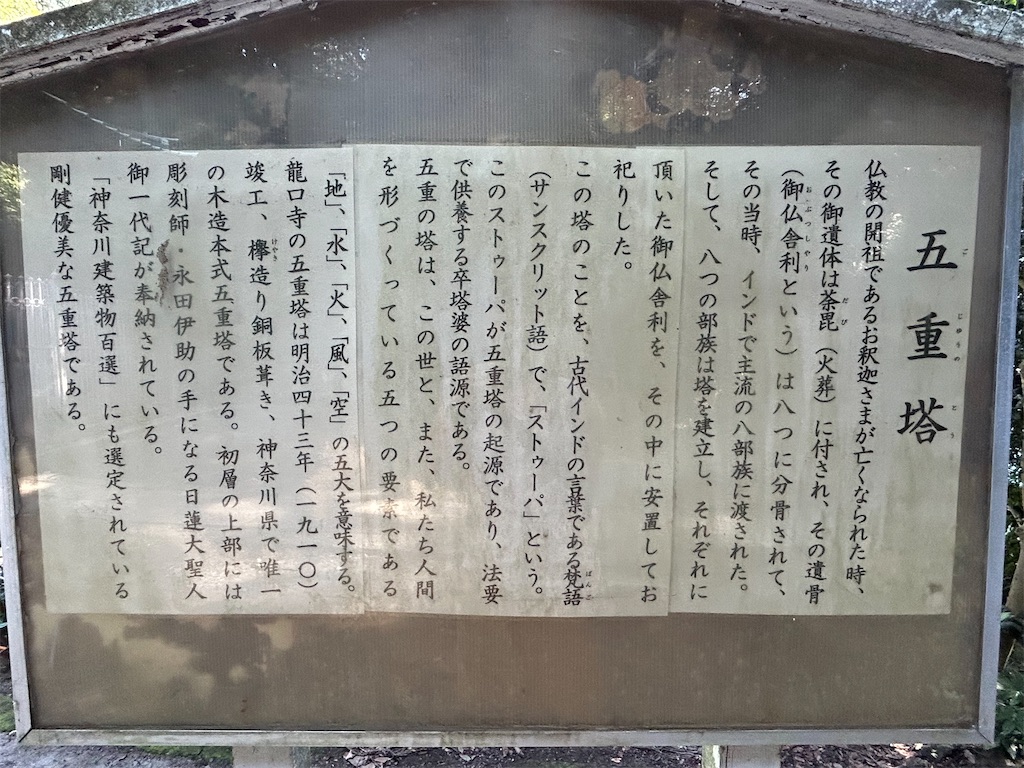 五重塔
仏教の開祖であるお釈迦さまが亡くなられた時、
その御遺体は荼毘（火葬）に付され、その遺骨
（御仏舎利という）は八つに分骨されて、
その当時、インドで主流の八部族に渡された。
そして、八つの部族は塔を建立し、それぞれに
頂いた御仏舎利を、その中に安置してお
祀りした。
この塔のことを、古代インドの言葉である梵語
（サンスクリット語）で、「ストゥーパ」という。
このストゥーパが五重塔の起源であり、法要
で供養する卒塔婆の語源である。
五重の塔は、この世と、また、私たち人間
を形づくっている五つの要素である
「地」、「水」、「火」、「風」、「空」の五大を意味する。
龍口寺の五重塔は明治四十三年（一九一〇）
竣工、欅造り銅板葺き、神奈川県で唯一
の木造本式五重塔である。初層の上部には
彫刻師・永田伊助の手になる日蓮大聖人
御一代記が奉納されている。
「神奈川建築物百選」にも選定されている
剛健優美な五重塔である。